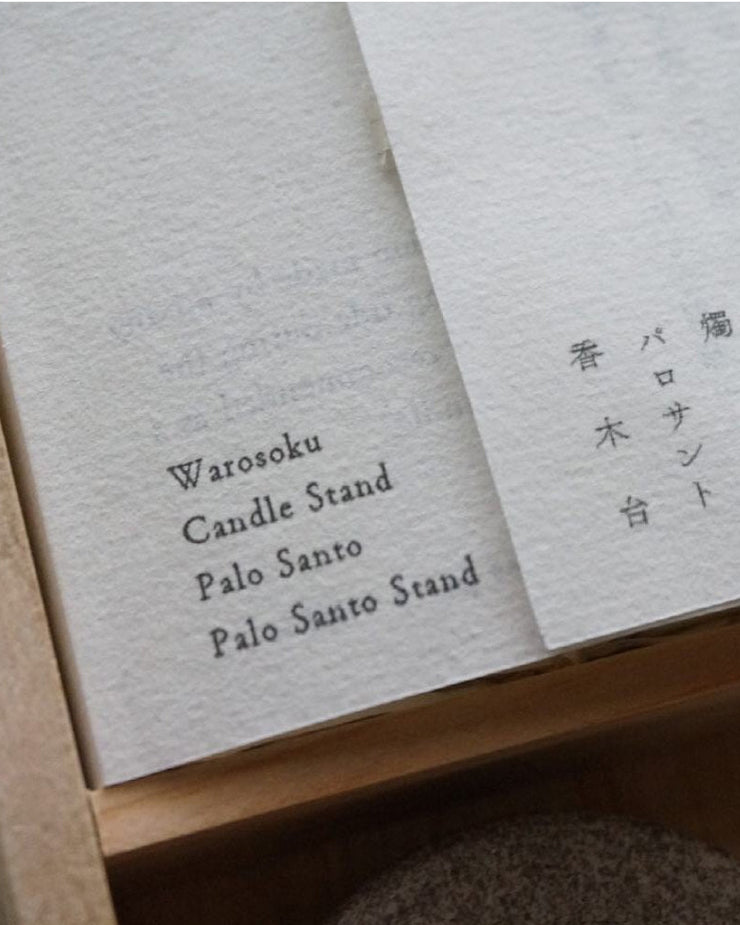 Warosoku
Candle Stand
Palo Santo
Palo Santo Stand
燭
パロサント
香木台